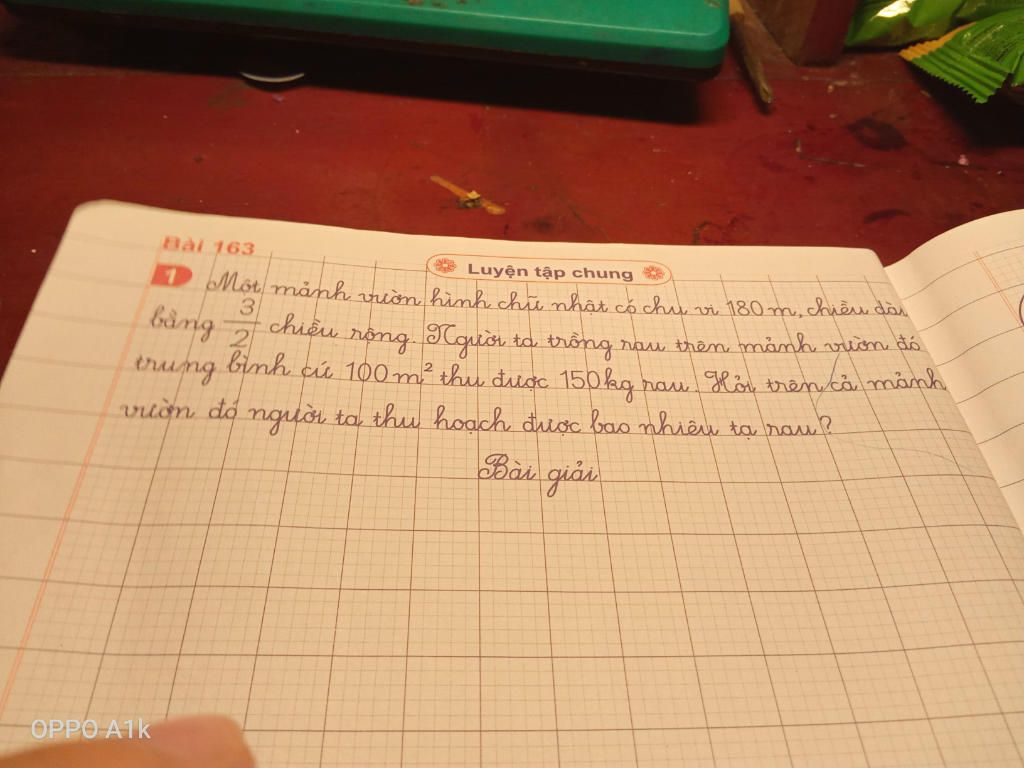 Bài 163
Luyện tập chung
1 Một mảnh vườn hình chữ nhật có chu vi 180 m, chiều dài
bằng 3/2 chiều rộng. Người ta trồng rau trên mảnh vườn đó
trung bình cứ 100 m² thu được 150 kg rau. Hỏi trên cả mảnh
vườn đó người ta thu hoạch được bao nhiêu tạ rau?
Bài giải
OPPO A1k